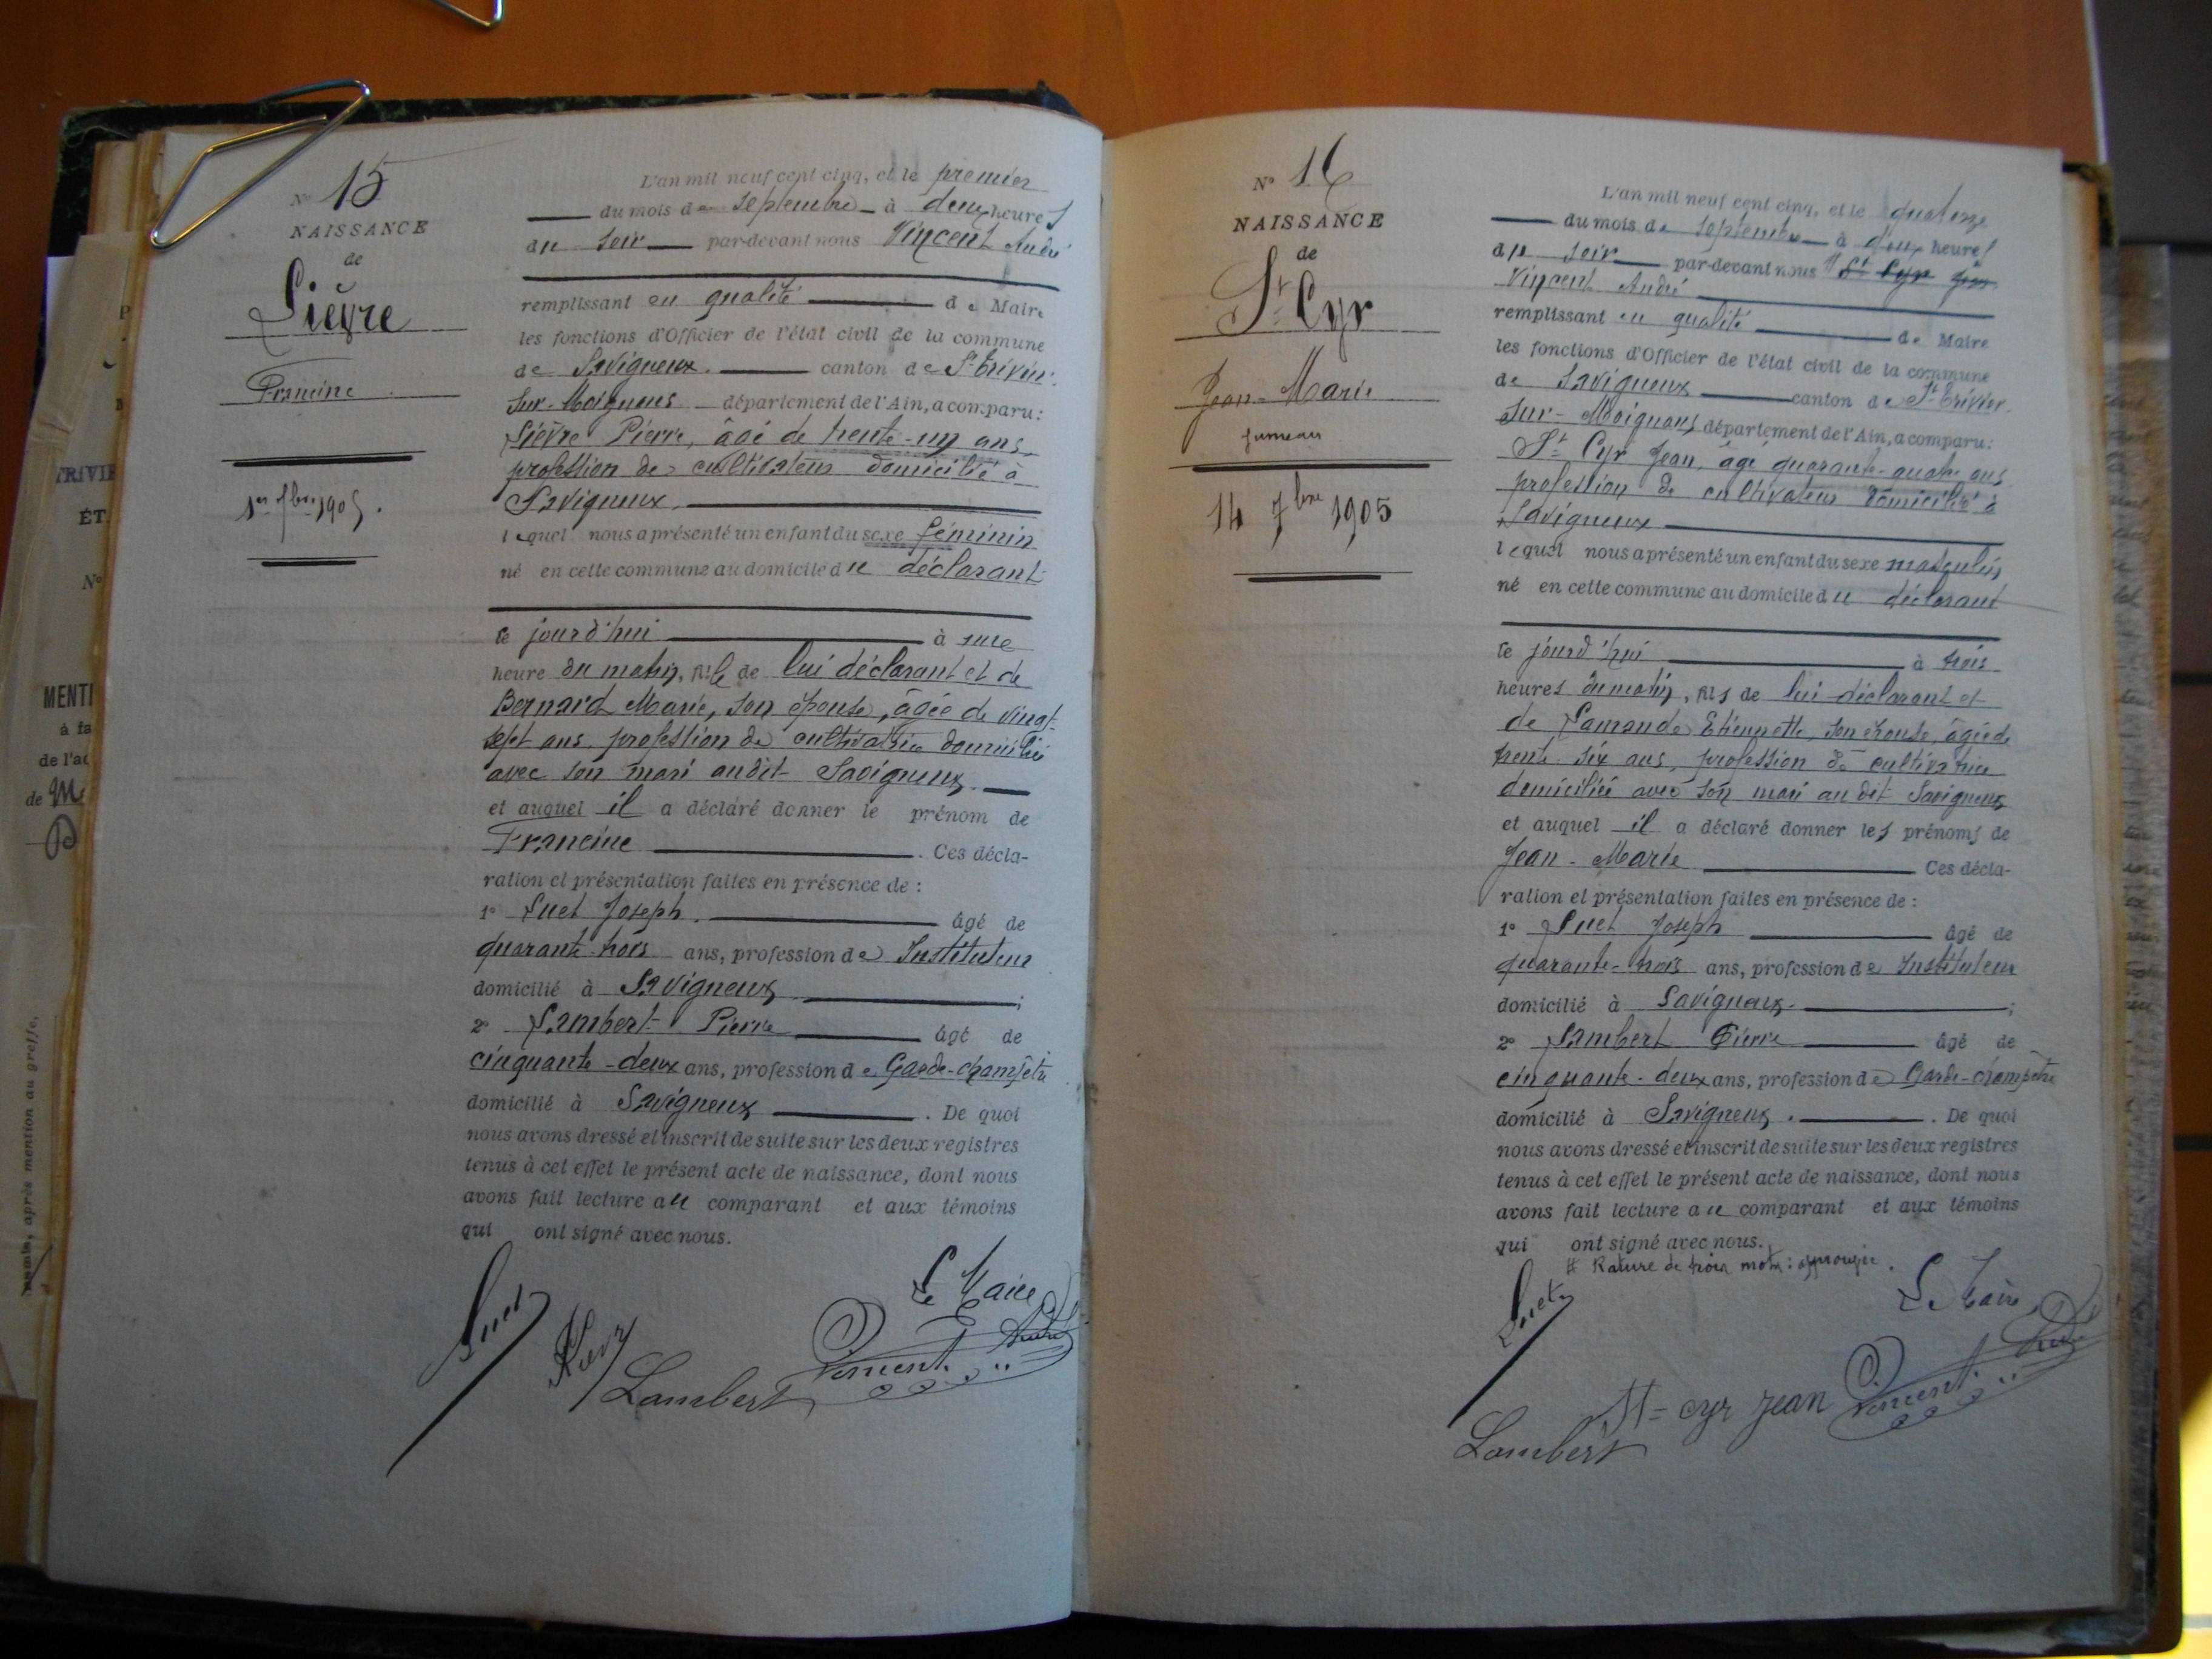 N° 15
NAISSANCE
de
Lièvre
Francine
1er 7bre 1905.
L'an mil neuf cent cinq, et le premier
du mois de Septembre à deux heures
du soir par-devant nous Vincent André
remplissant en qualité de Maire
les fonctions d'Officier de l'état civil de la commune
de Savigneux. canton de St Trivier
sur-Moignans département de l'Ain, a comparu:
Lièvre Pierre, âgé de trente-un ans,
profession de cultivateur domicilié à
Savigneux.
lequel nous a présenté un enfant du sexe féminin
né en cette commune au domicile du déclarant
ce jourd'hui à une
heure du matin, fille de lui déclarant et de
Bernard Marie, son épouse, âgée de vingt-
sept ans profession de cultivatrice domiciliée
avec son mari audit Savigneux.
et auquel il a déclaré donner le prénom de
Francine . Ces décla-
ration et présentation faites en présence de :
1° Suet Joseph. âgé de
quarante-trois ans, profession de Instituteur
domicilié à Savigneux ;
2° Lambert Pierre âgé de
cinquante-deux ans, profession de Garde-champêtre
domicilié à Savigneux . De quoi
nous avons dressé et inscrit de suite sur les deux registres
tenus à cet effet le présent acte de naissance, dont nous
avons fait lecture au comparant et aux témoins
qui ont signé avec nous.
Le Maire
Suet
Lambert
Vincent André
N° 16
NAISSANCE
de
St Cyr
Jean-Marie
jumeau
14 7bre 1905
L'an mil neuf cent cinq, et le quatorze
du mois de septembre à deux heures
du soir par-devant nous St Cyr Jean
Vincent André
remplissant en qualité de Maire
les fonctions d'Officier de l'état civil de la commune
de Savigneux canton de St Trivier
sur-Moignans département de l'Ain, a comparu:
St Cyr Jean, âgé quarante-quatre ans
profession de cultivateur domicilié à
Savigneux
lequel nous a présenté un enfant du sexe masculin
né en cette commune au domicile du déclarant
ce jourd'hui à trois
heures du matin, fils de lui déclarant et
de Etiennette, son épouse, âgée de
trente-six ans, profession de cultivatrice
domiciliée avec son mari audit Savigneux
et auquel il a déclaré donner les prénoms de
Jean-Marie Ces décla-
ration et présentation faites en présence de :
1° Suet Joseph âgé de
quarante-trois ans, profession de Instituteur
domicilié à Savigneux. ;
2° Lambert Pierre âgé de
cinquante-deux ans, profession de Garde-champêtre
domicilié à Savigneux . De quoi
nous avons dressé et inscrit de suite sur les deux registres
tenus à cet effet le présent acte de naissance, dont nous
avons fait lecture au comparant et aux témoins
qui ont signé avec nous.
# Rature de trois mots : approuvée.
Le Maire
Suet
St-cyr jean
Vincent André
Lambert